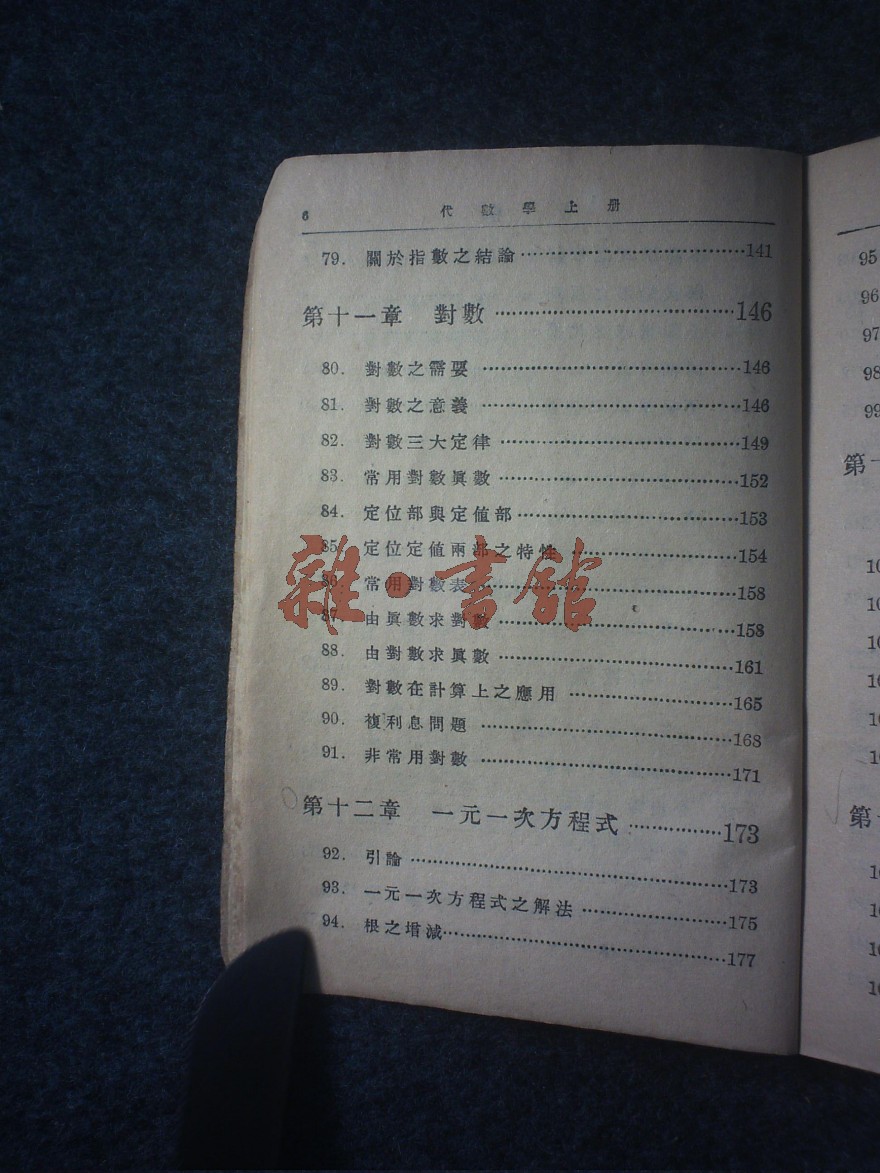 6 代數學上册
79. 關於指數之結論 141
第十一章 對數 146
80. 對數之需要 146
81. 對數之意義 146
82. 對數三大定律 149
83. 常用對數眞數 152
84. 定位部與定值部 153
85. 定位定值兩部之特性 154
86. 常用對數表 158
87. 由眞數求對數 158
88. 由對數求眞數 161
89. 對數在計算上之應用 165
90. 複利息問題 168
91. 非常用對數 171
第十二章 一元一次方程式 173
92. 引論 173
93. 一元一次方程式之解法 175
94. 根之增減 177
雜·書館
95
96
97
98
99
第
第